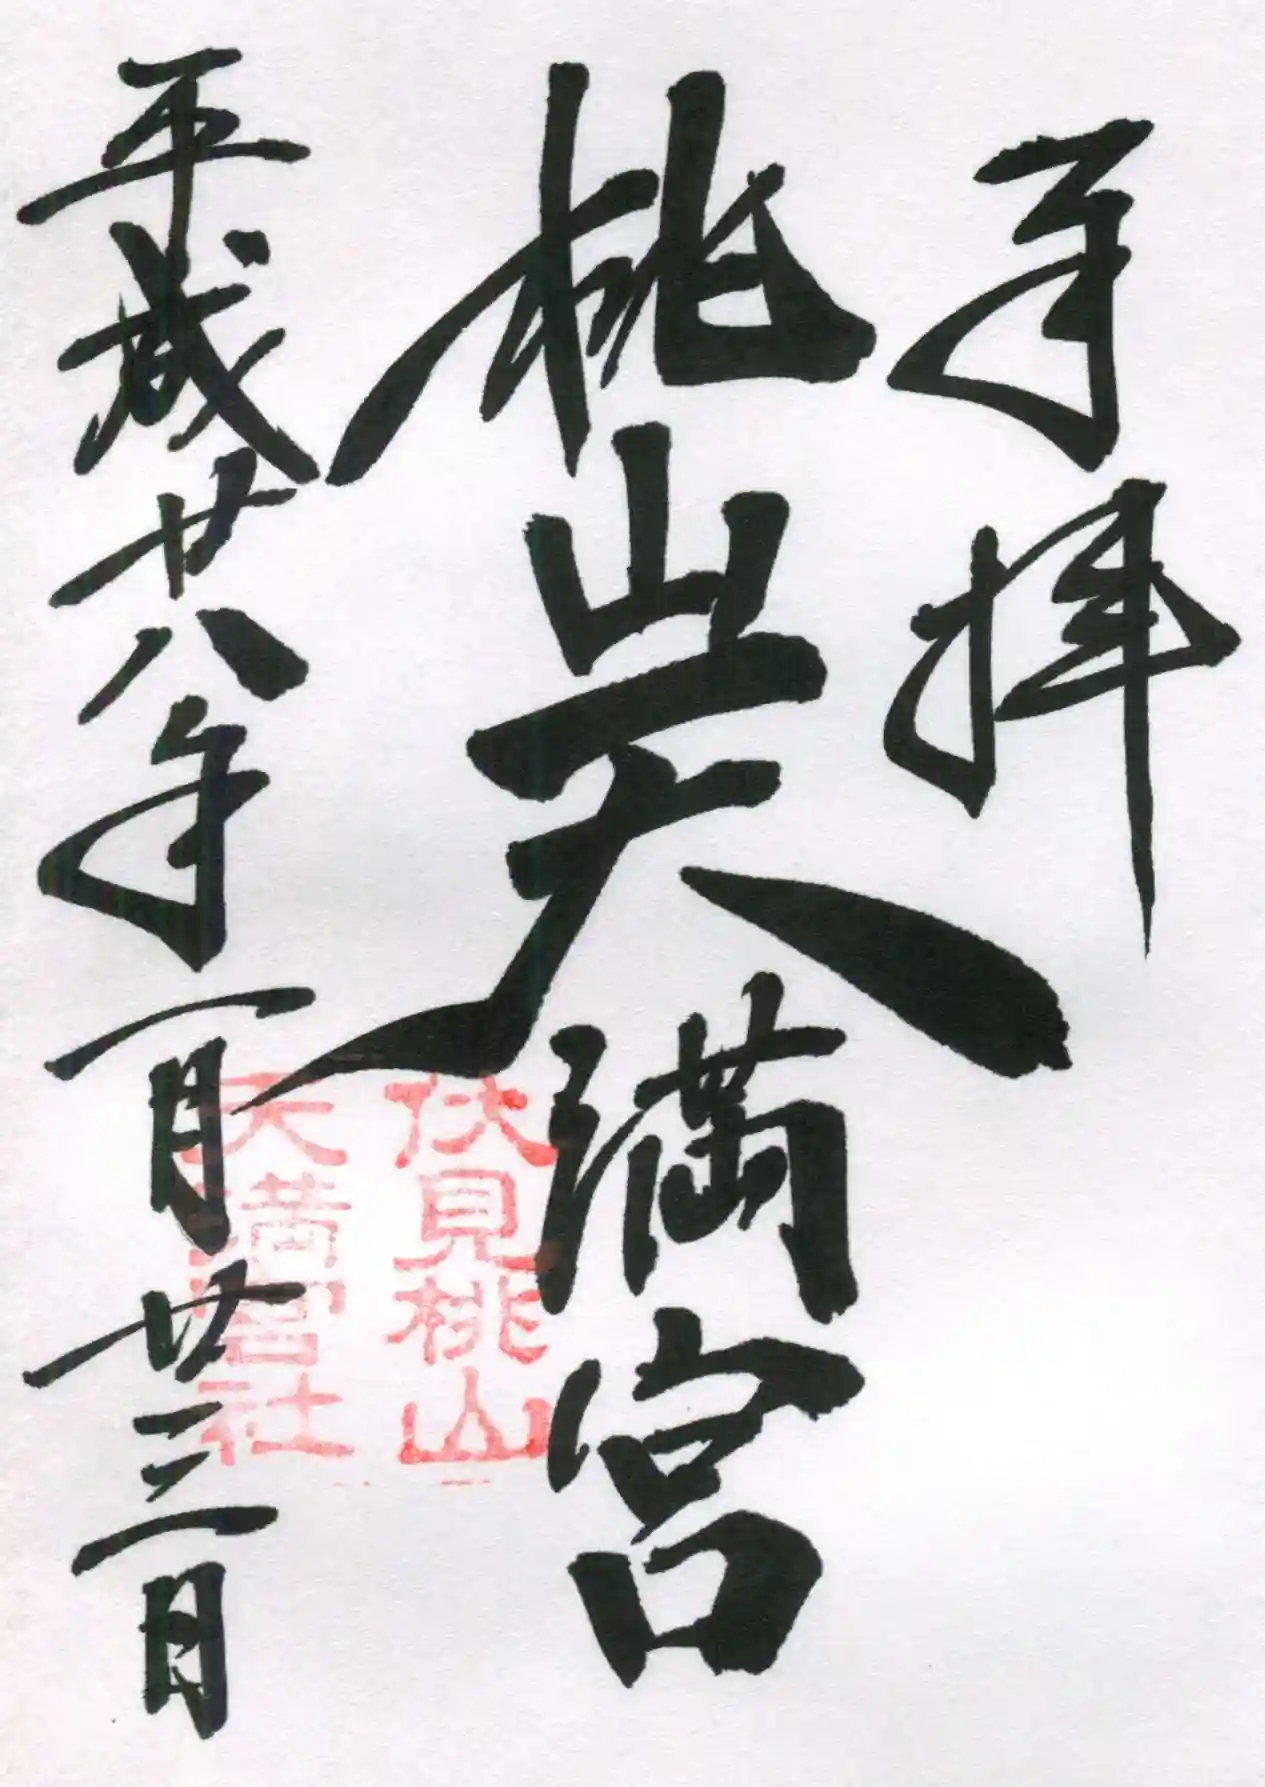 奉拝
桃山天満宮
平成廿八年一月廿三日
伏見桃山
天満宮社